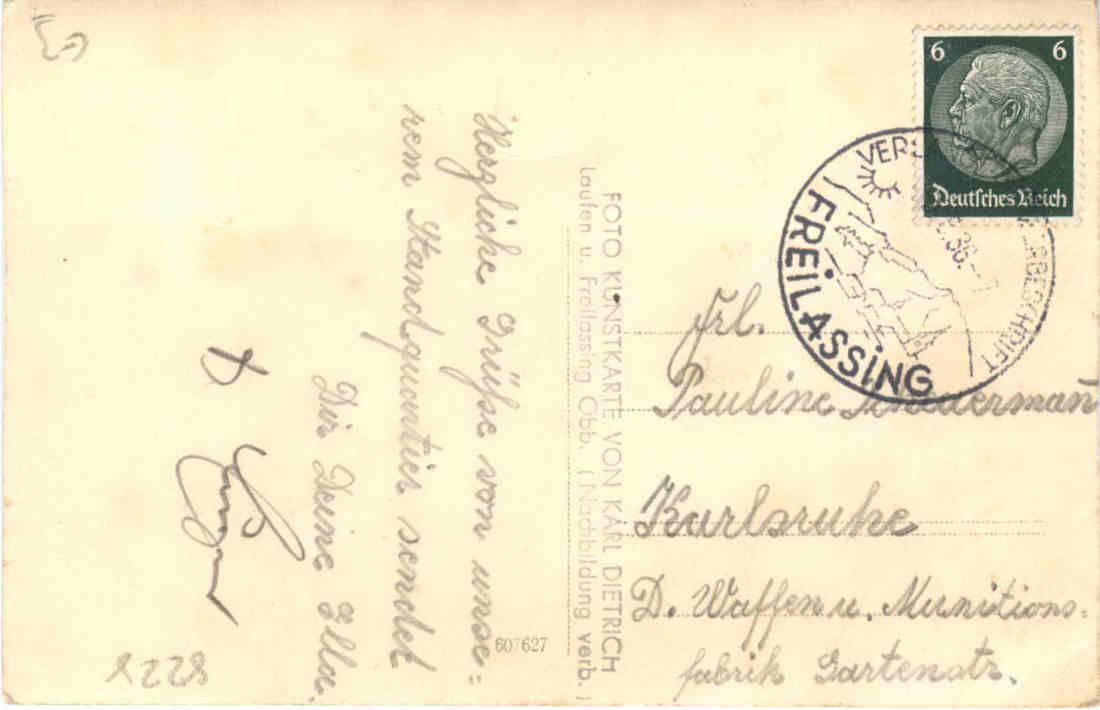 Herzliche Grüße von unse=
rem Standquartier sendet
Dir Deine Ella.
8228
FOTO KUNSTKARTE VON KARL DIETRICH
Laufen u. Freilassing Obb. (Nachbildung verb.)
607627
6 6
Deutsches Reich
FREILASSING
36.
Frl.
Pauline
Karlsruhe
D. Waffen u. Munitions=
fabrik Gartenstr.